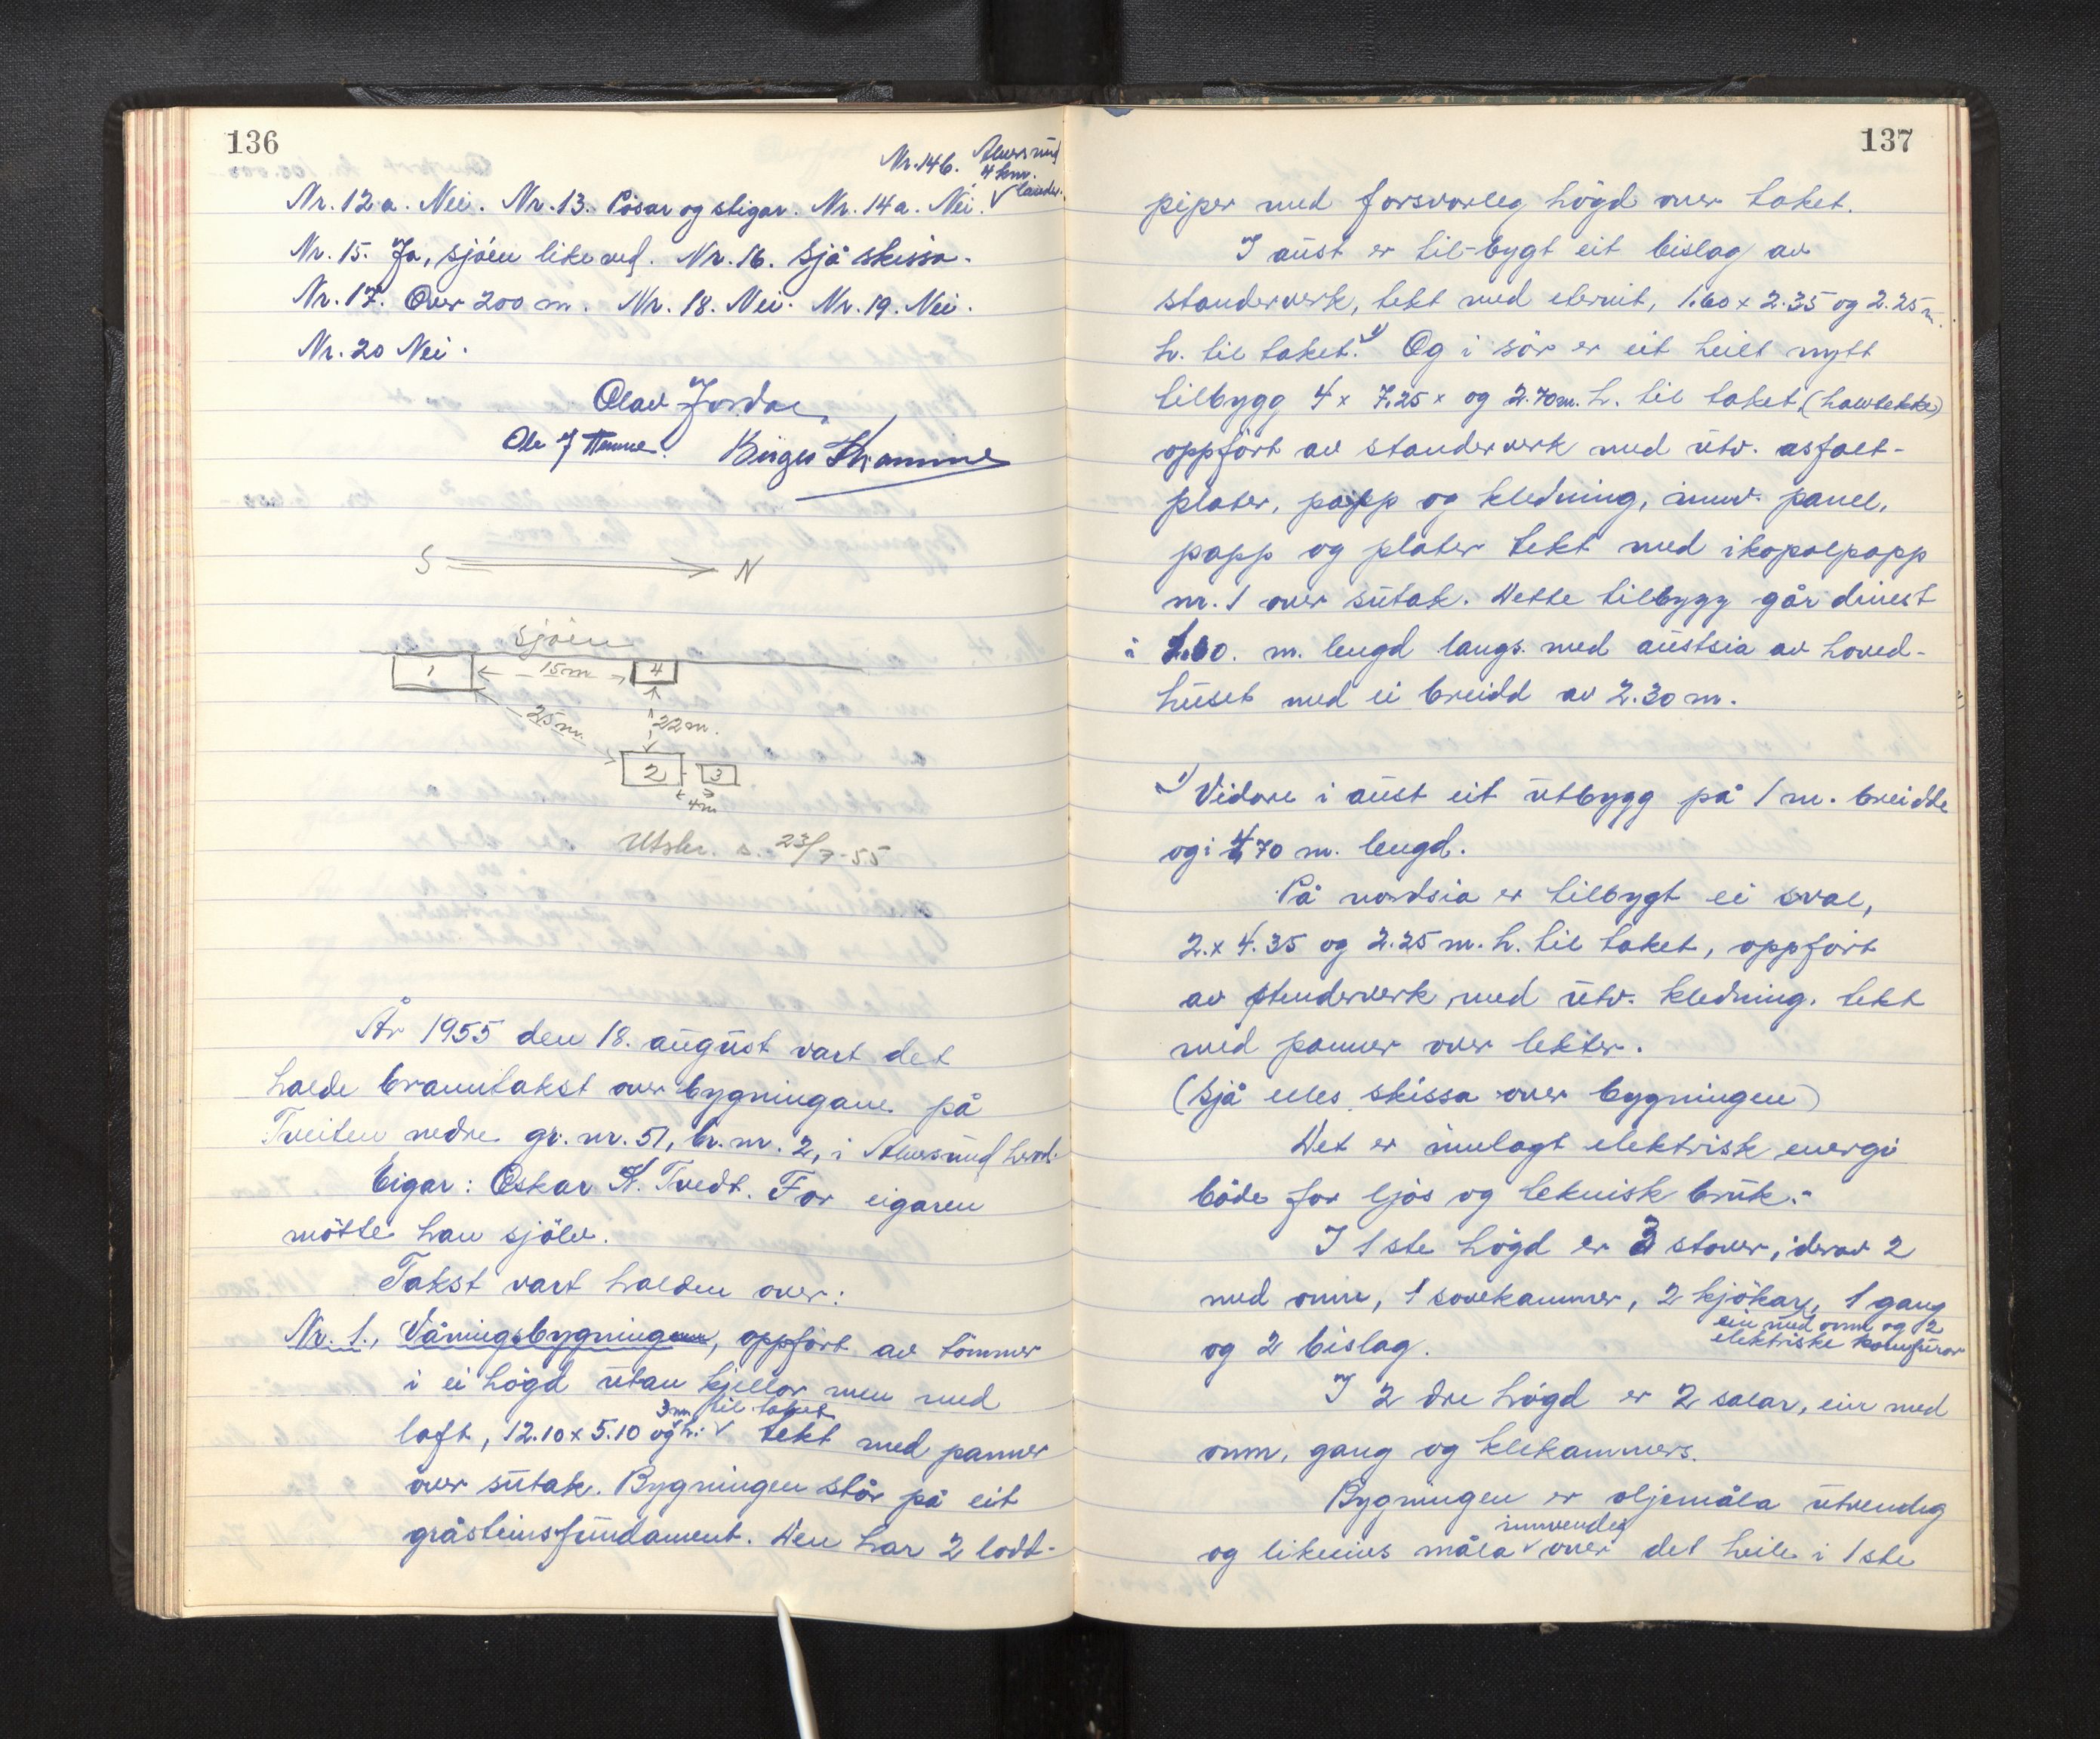 136
Nr. 14b. Alversund
4 km.
landv.
Nr. 12 a. Nei. Nr. 13. Pósar og stigar. Nr. 14 a. Nei. √
Nr. 15. Ja, sjóen like ved. Nr. 16. Sjå skissa.
Nr. 17. Over 200 m. Nr. 18. Nei. Nr. 19. Nei.
Nr. 20 Nei.
Olav Jordal
Ole J
Birger
S N
Sjóen
1 15m 4
25m. 22m.
2 3
4m
Utskr. s. 23/7-55
År 1955 den 18. august vart det
halde branntakst over bygningane på
Tveiten nedre gr. nr. 51, br. nr. 2, i Alversund herad.
Eigar: Oskar K. Tvedt. For eigaren
mótte han sjölv.
Takst vart halden over:
Nr. 1., Våningsbygningen, oppfört av tömmer
i ei högd utan kjellar men med
3 m til taket
loft, 12.10 x 5.10 og h: √ tekt med panner
over sutak. Bygningen står på eit
gråsteinsfundament. Den har 2 lodd-
137
piper med forsvarleg högd over taket.
I aust er til-bygt eit bislag av
standerverk, tekt med eternit, 1.60 x 2.35 og 2.25 m.
h. til taket. 1) Og i sör er eit heilt nytt
tilbygg 4 x 7.25 x og 2.70 m. h. til taket, (halvtekke)
oppfört av standerverk med utv. asfalt-
plater, papp og kledning, innv. panel,
papp og plater tekt med ikopalpapp
nr. 1 over sutak. Dette tilbygg går dinest
i m. lengd langs med austsia av hoved-
huset med ei breidd av 2.30 m.
1) Vidare i aust eit utbygg på 1 m. breidde
og i 4.70 m. lengd.
På nordsia er tilbygt ei sval,
2. x 4.35 og 2.25 m. h. til taket, oppfört
av stenderverk med utv. kledning. tekt
med panner over lekter.
(Sjå elles skissa over bygningen)
Det er innlagt elektrisk energi
både for ljós og teknisk bruk.-
I 1ste högd er 3 stover, derav 2
med omn, 1 sovekammer, 2 kjökar, 1 gang
ein med omn og 2
elektriske komfurar
og 2 bislag.
I 2 dre högd er 2 salar, ein med
omn, gang og klekammers.
Bygningen er oljemåla utvendig
innvendig
og likeeins måla √ over det heile i 1ste